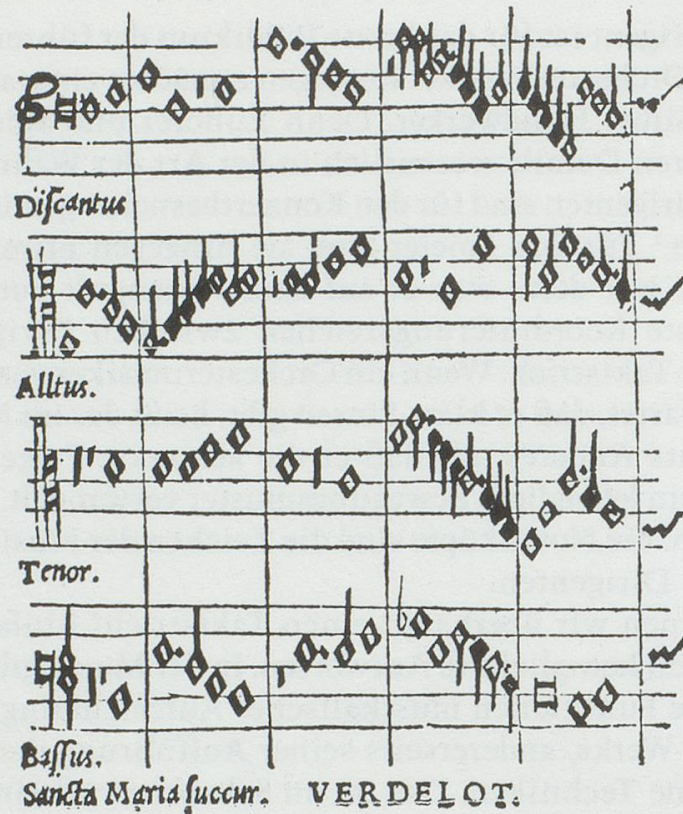 Diſcantus
Alltus.
Tenor.
Baſſus.
Sancta Maria ſuccur. VERDELOT.